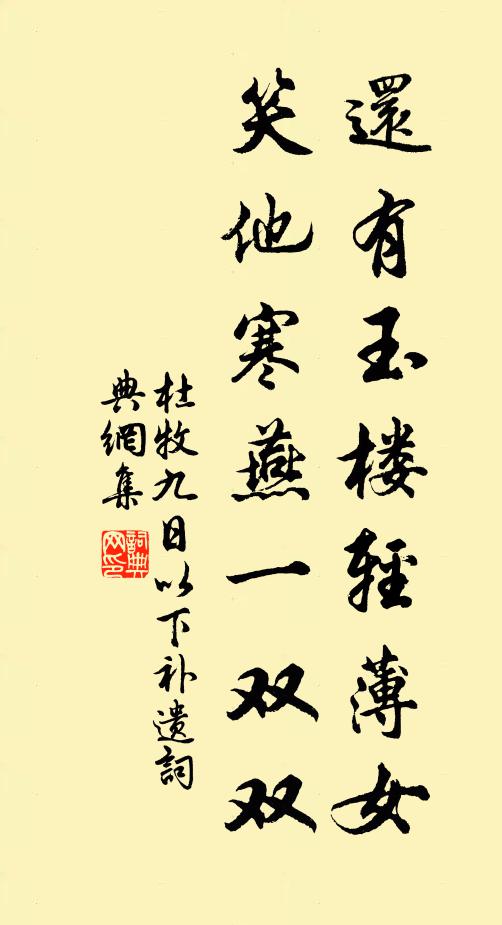 還有玉楼輕薄女
笑他寒燕一双双
杜牧九日以下补遗詞
典網集
詞典
网印